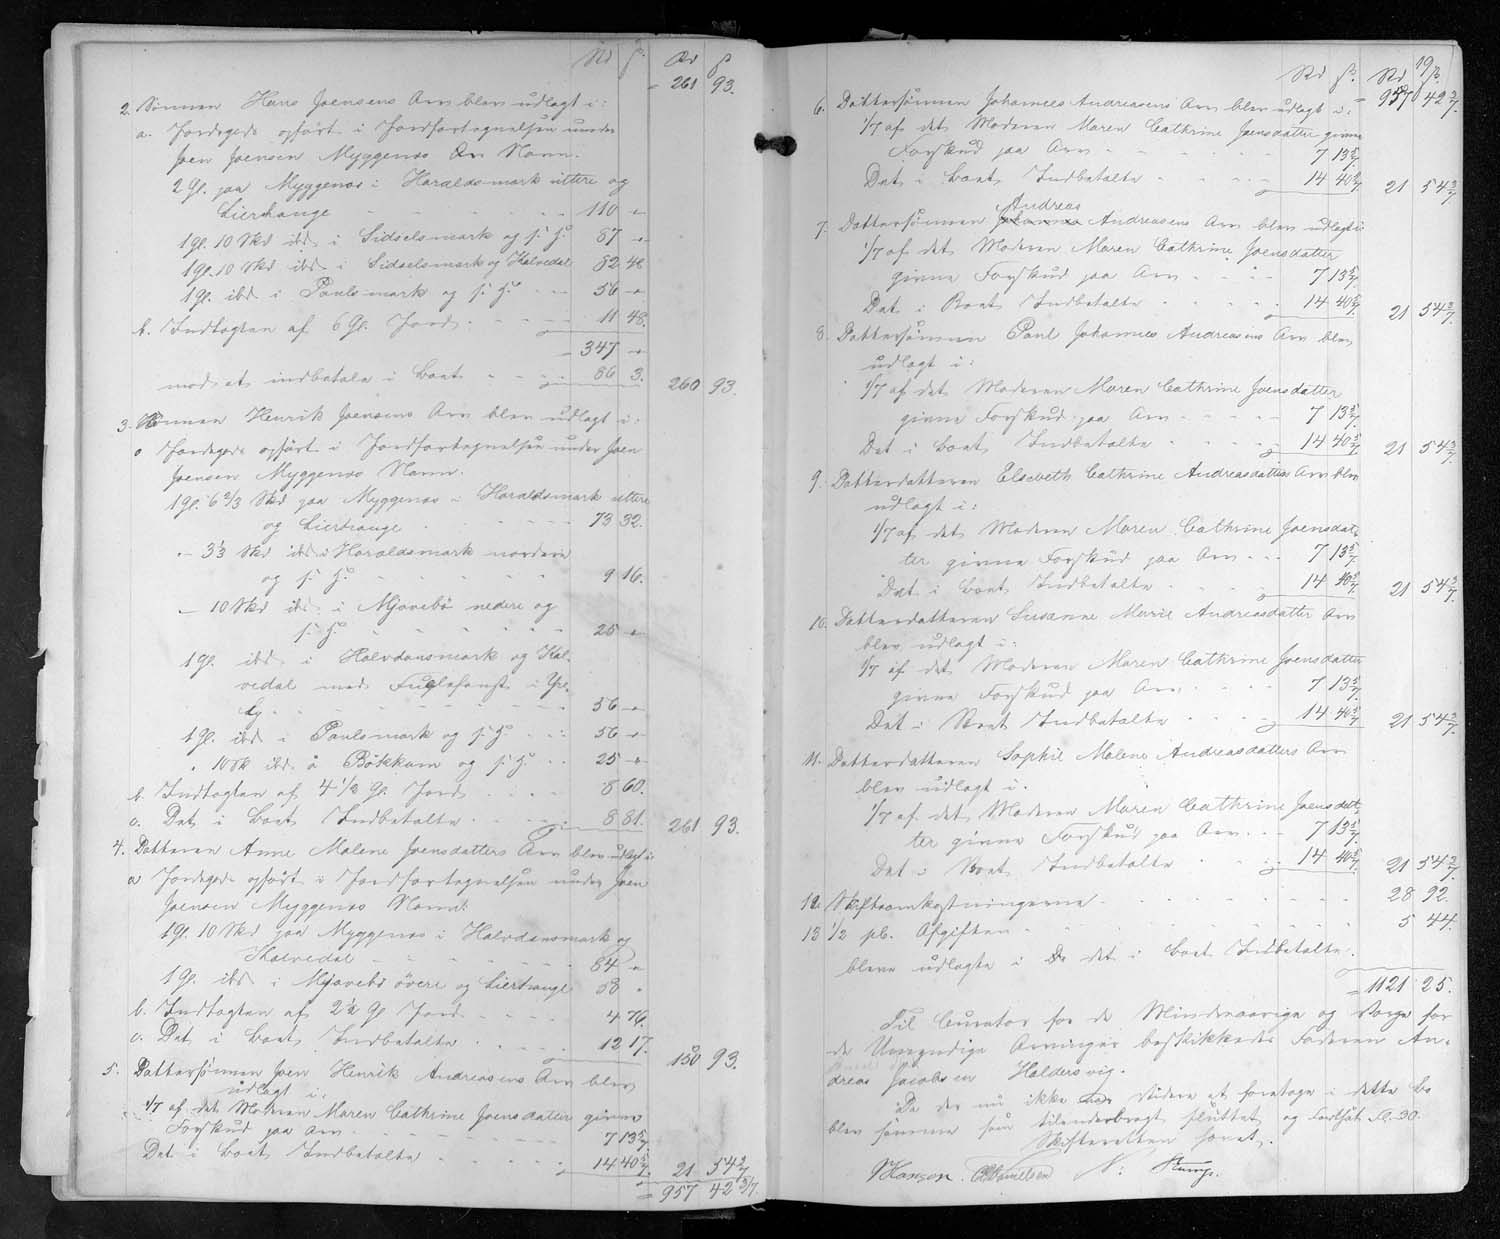 Rd β. Rd β
261 93.
2. Sønnen Hans Joensens Arv blev udlagt i:
a. Jordegods opført i Jordfortegnelsen under
Joen Joensen Myggenæs Navn.
2 Gl. paa Myggenæs i Haraldsmark uttere og
Liertrange - - - 110 "
1 Gl. 10 Skd ibd i Sidselsmark og s. H. 87 "
1 Gl. 10 Skd ibd i Sidselsmark og Kalvedal 82 48
1 Gl. ibd i Poulsmark og s. H. - - 56 "
b. Indtægten af 6 Gl. Jord. - - - - 11 48.
= 347 "
mod at indbetale i Boet - - - 86 3. 260 93.
3. Sønnen Henrik Joensens Arv blev udlagt i:
a Jordegods opført i Jordfortegnelsen under Joen
Joensen Myggenæs Navn.
1 Gl. 6 2/3 Skd paa Myggenæs i Haraldsmark uttere
og Liertrange - - - 73 32.
" - 3 1/3 Skd ibd i Haraldsmark nordere
og s. H. - - - 9 16.
- 10 Skd ibd. i Mjovebö nedere og
s. H. - - - 25 "
1 Gl. ibd i Halvdansmark og Kal-
vedal med Fuglefangst i
- - - 56 "
1 Gl. ibd i Poulsmark og s. H. - - 56 "
" 10 Sk ibd å Bökkam og s. H. - - 25 "
b. Indtægten af 4 1/2 Gl. Jord - - - - 8 60.
c. Det i Boet Indbetalte - - - - 8 81. 261 93.
4. Datteren Anne Malene Joensdatters Arv blev udlagt i:
a Jordegods opført i Jordfortegnelsen under Joen
Joensen Myggenæs Navn:
1 Gl. 10 Skd paa Myggenæs i Halvdansmark og
Kalvedal - - - 84 "
1 Gl. ibd i Mjovebö övere og Liertrange 58 "
b. Indtægten af 2 1/2 Gl Jord - - - - 4 76.
c. Det i Boet Indbetalte - - - - 12 17. 150 93.
5. Dattersönnen Joen Henrik Andreasens Arv blev
udlagt i:
1/7 af det Moderen Maren Cathrine Joensdatter givne
Forskud paa Arv - - - 7 13 5/7.
Det i Boet Indbetalte - - - 14 40 5/7. 21 54 3/7
= 957 42 3/7.
19
Rd β. Rd β.
957 42 3/7.
6. Dattersønnen Johannes Andreasens Arv blev udlagt i:
1/7 af det Moderen Maren Cathrine Joensdatter givne
Forskud paa Arv - - - 7 13 5/7.
Det i Boet Indbetalte - - - 14 40 5/7. 21 54 3/7
Andreas
7. Dattersønnen Johannes Andreasens Arv blev udlagt i
1/7 af det Moderen Maren Cathrine Joensdatter
givne Forskud paa Arv - - - 7 13 5/7.
Det i Boet Indbetalte - - - 14 40 5/7. 21 54 3/7.
8. Dattersønnen Poul Johannes Andreasens Arv blev
udlagt i:
1/7 af det Moderen Maren Cathrine Joensdatter
givne Forskud paa Arv - - - 7 13 5/7.
Det i Boet Indbetalte - - - 14 40 5/7. 21 54 3/7.
9. Datterdatteren Elsebeth Cathrine Andreasdatters Arv blev
udlagt i:
1/7 af det Moderen Maren Cathrine Joensdat-
ter givne Forskud paa Arv - - - 7 13 5/7.
Det i Boet Indbetalte - - - 14 40 5/7. 21 54 3/7.
10. Datterdatteren Susanne Marie Andreasdatter Arv
blev udlagt i:
1/7 af det Moderen Maren Cathrine Joensdatter
givne Forskud paa Arv - - - 7 13 5/7.
Det i Boet Indbetalte - - - 14 40 5/7. 21 54 3/7.
11. Datterdatteren Sophie Malene Andreasdatters Arv
blev udlagt i.
1/7 af det Moderen Maren Cathrine Joensdat-
ter givne Forskud paa Arv - - 7 13 5/7.
Det i Boet Indbetalte - - - 14 40 5/7. 21 54 3/7.
12. Skifteomkostningerne - - - 28 92.
13 1/2 pC. Afgiften - - - 5 44.
bleve udlagte i det i Boet Indbetalte.
= 1121 25.
Til Curator for de Mindreaarige og Værge for
de Umyndige Arvinger beskikkedes Faderen An-
dreas Jacobsen Haldersvig.
Da der nu ikke var videre at foretage i dette Bo
blev samme som tilendebragt sluttet og Indført Fol. 30.
Skifteretten hævet.
V Hansen. Danielsen